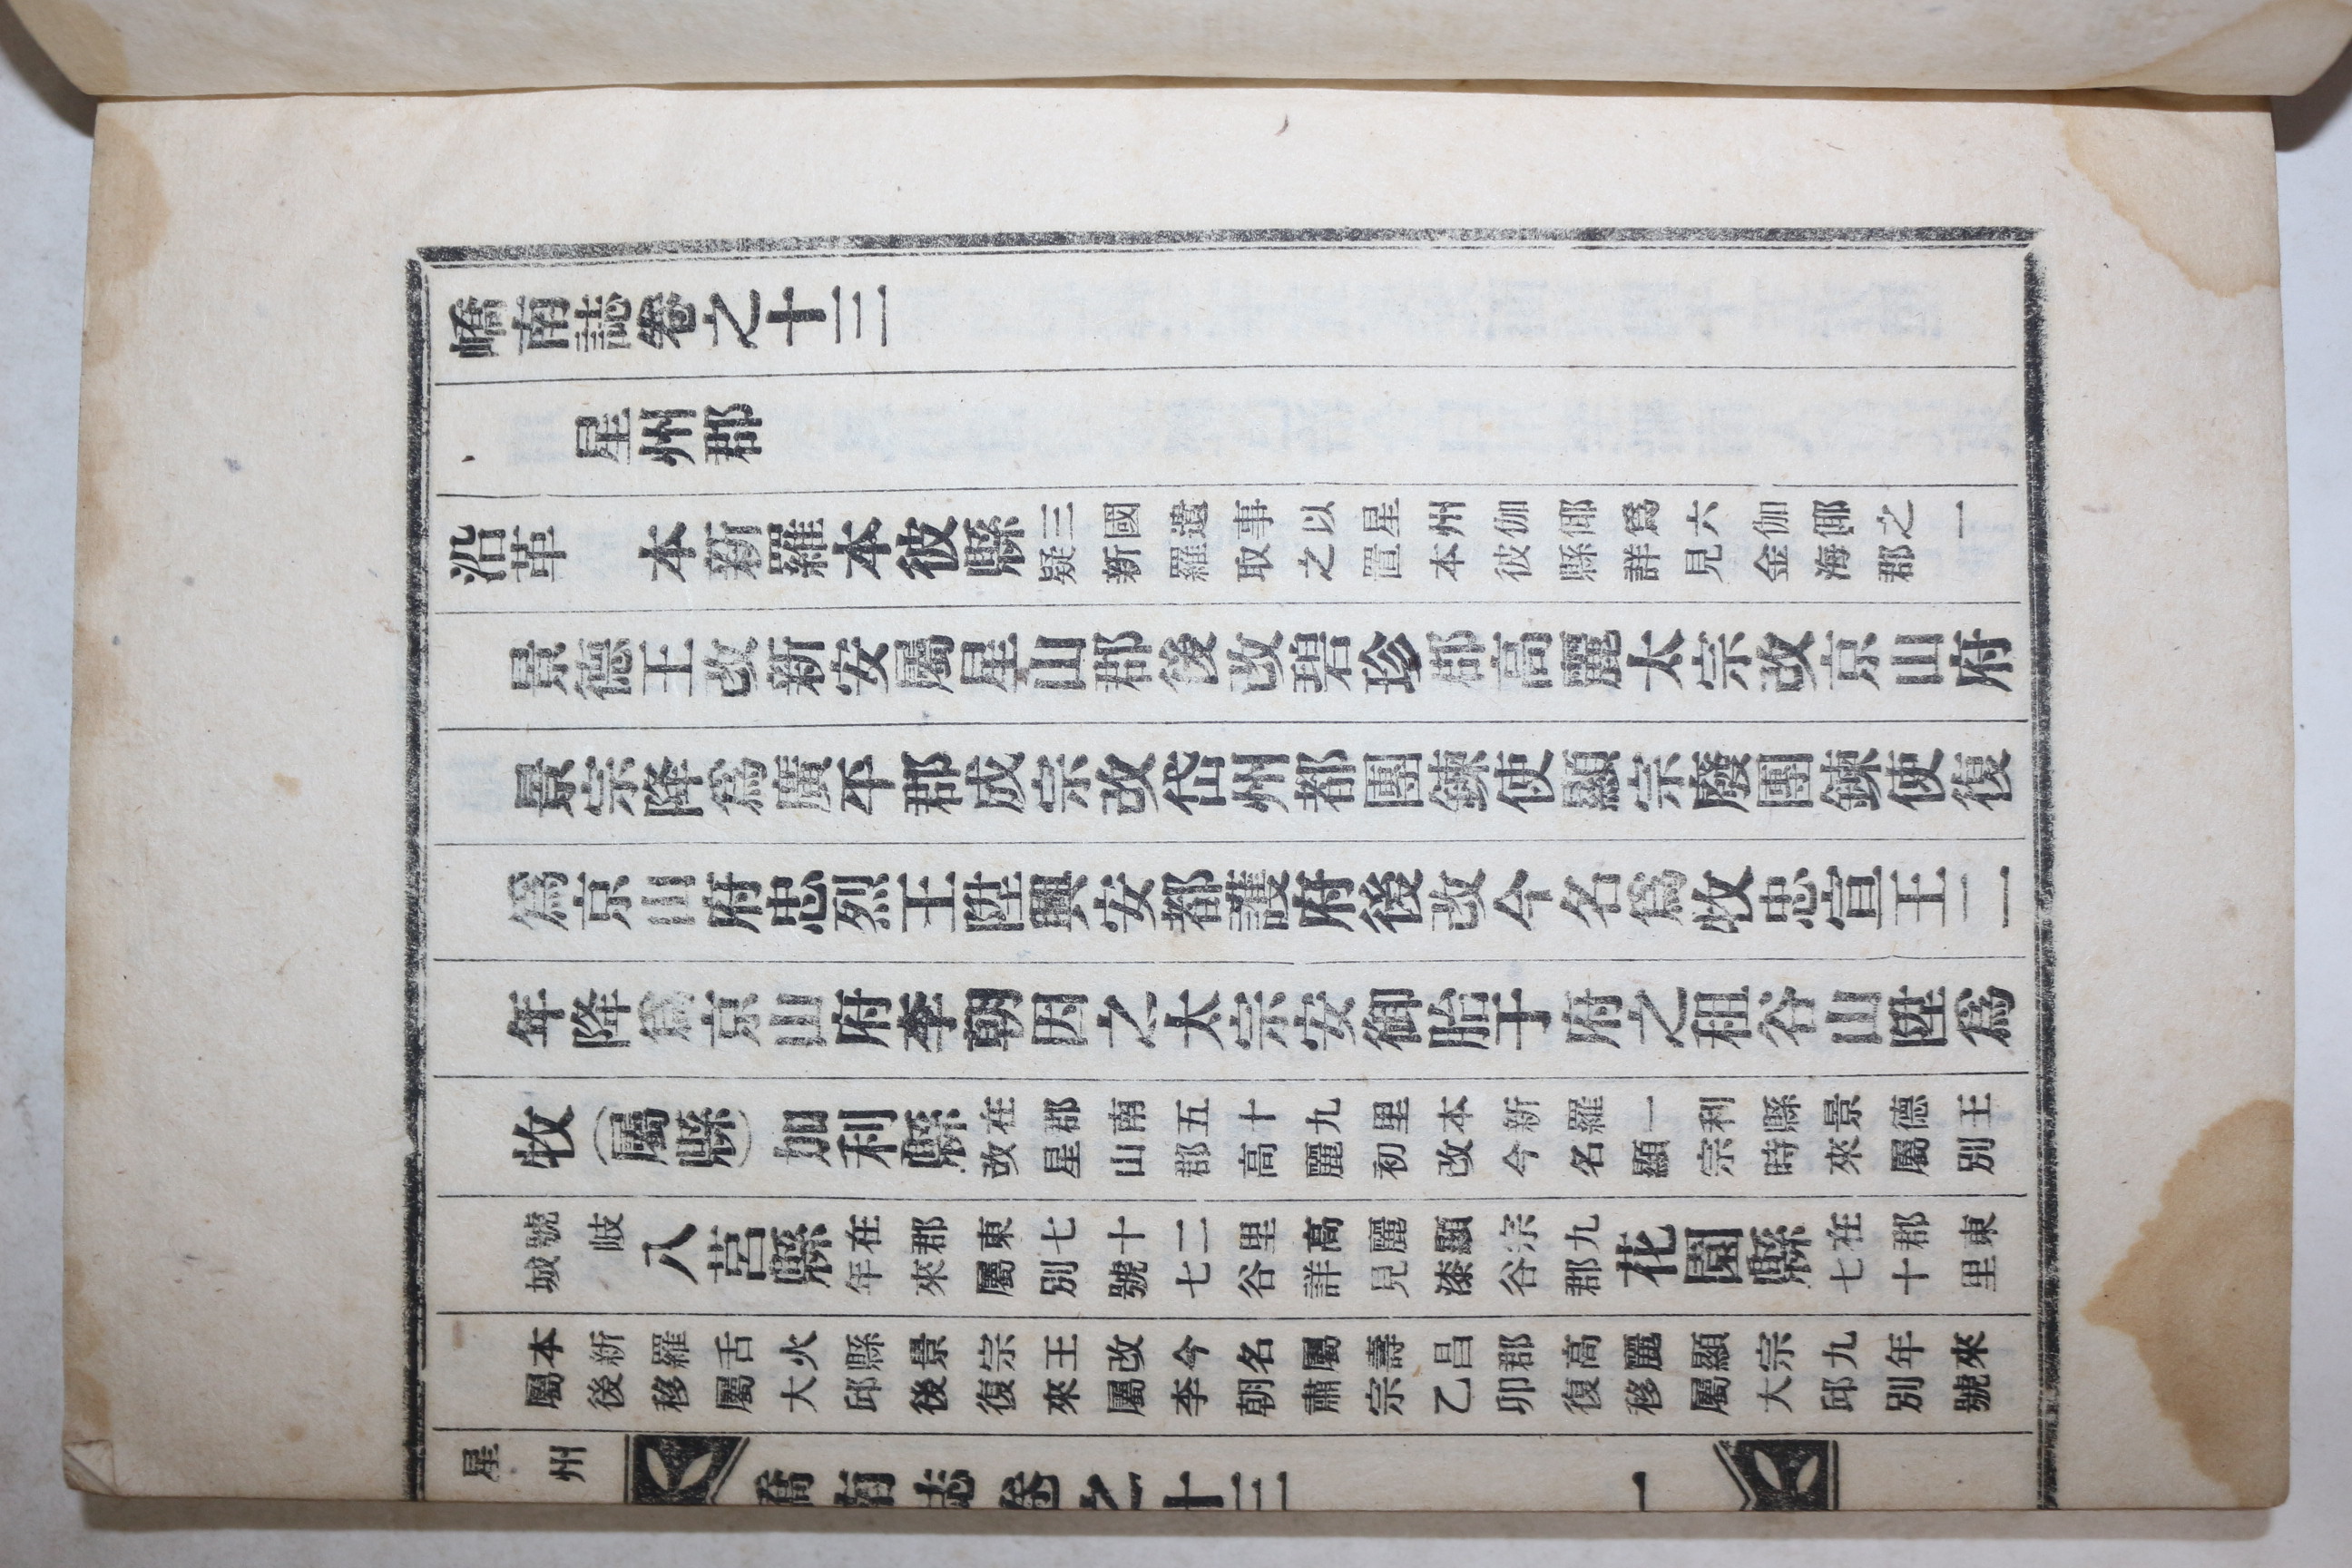 嶠南誌卷之十三
星州郡
沿革 本新羅本彼縣三國遺事以星州伽倻爲六伽倻之一疑新羅取之置本彼縣詳見金海郡
景德王改新安屬星山郡後改碧珍郡高麗太宗改京山府
景宗降爲廣平郡成宗改岱州都團鍊使顯宗廢團鍊使復
爲京山府忠烈王陞興安都護府後改今名爲牧忠宣王二
年降爲京山府李朝因之太宗安御胎于府之祖谷山陞爲
牧(屬縣)加利縣在郡南五十九里本新羅一利縣景德王改星山郡高麗初改今名顯宗時來屬別
號岐城八莒縣在郡東七十二里高麗顯宗九年來屬別號七谷詳見漆谷郡花園縣在郡東七十里
本新羅舌火縣景宗王改今名屬壽昌郡高麗顯宗九年來屬後移屬大邱後復來屬李朝肅宗乙卯復移屬大邱別號
星州 嶠南誌卷之十三 一